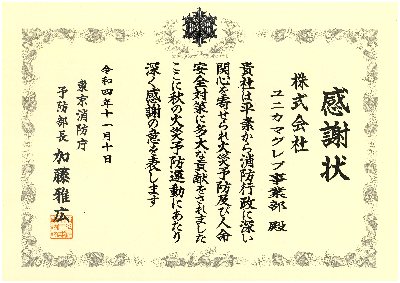 感謝状
株式会社
ユニカマグレブ事業部 殿
貴社は平素から消防行政に深い
関心を寄せられ火災予防及び人命
安全対策に多大な貢献をされました
ここに秋の火災予防運動にあたり
深く感謝の意を表します
令和四年十一月十日
東京消防庁
予防部長 加藤雅広